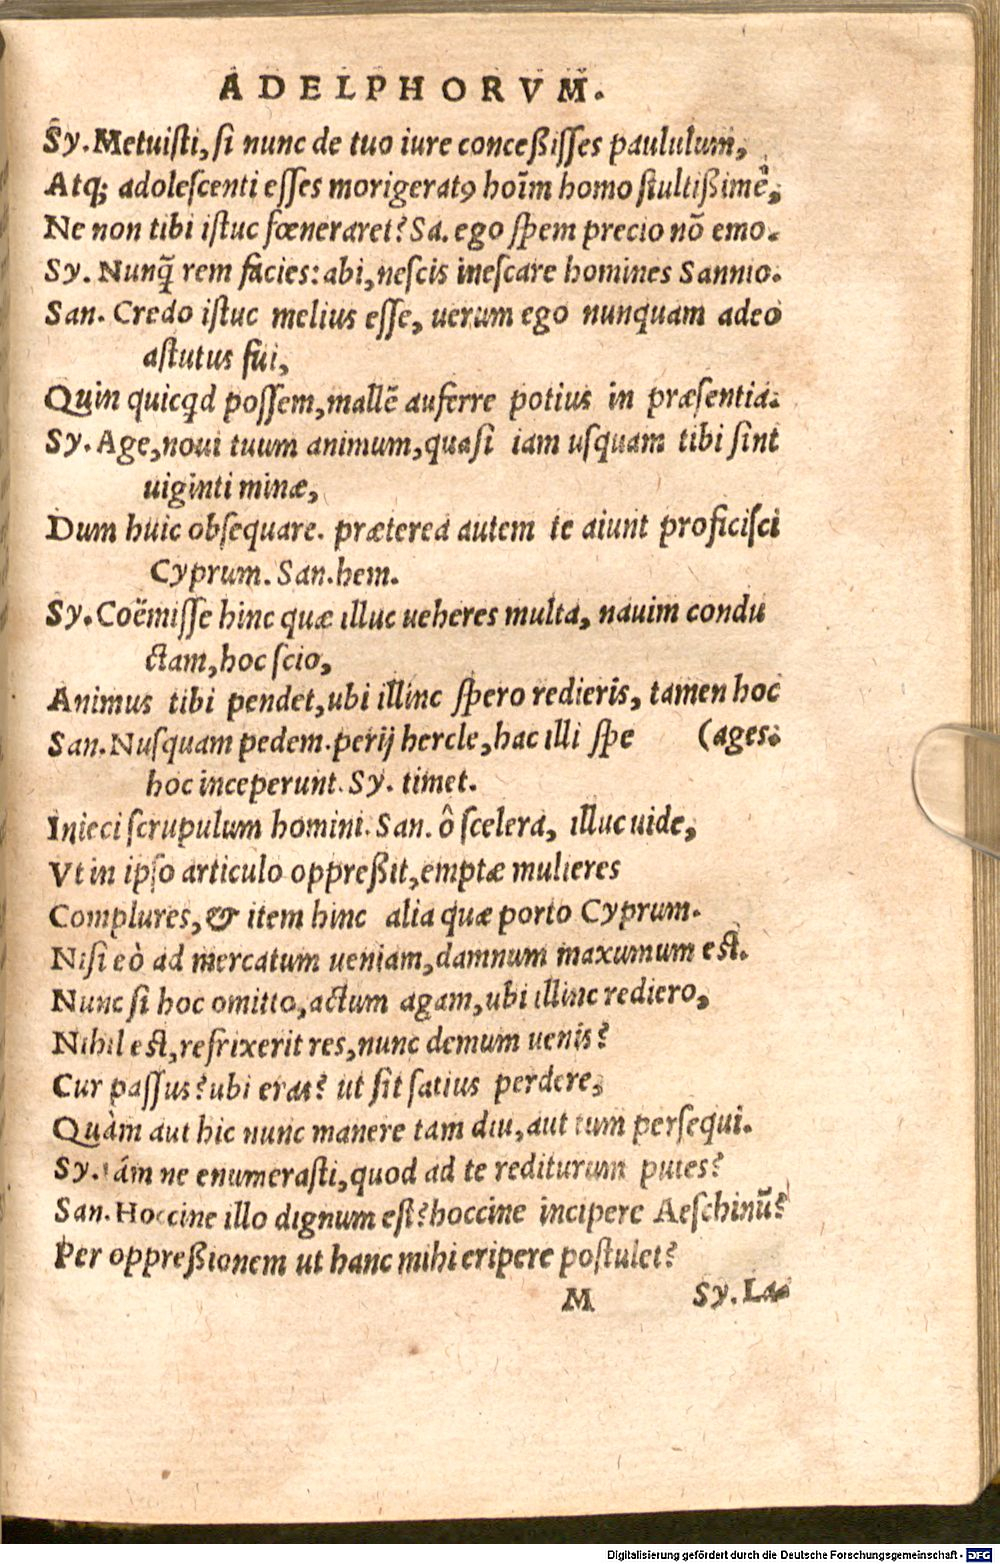 ADELPHORVM.
Sy. Metuisti, si nunc de tuo iure conceßisses paululum,
Atq; adolescenti esses morigeratꝯ hoīm homo stultißimē,
Ne non tibi istuc fœneraret? Sa. ego spem precio nō emo.
Sy. Nunq̃ rem facies: abi, nescis inescare homines Sannio.
San. Credo istuc melius esse, uerum ego nunquam adeo
astutus fui,
Quin quicq̃d possem, mallē auferre potius in præsentia.
Sy. Age, noui tuum animum, quasi iam usquam tibi sint
uiginti minæ,
Dum huic obsequare. præterea autem te aiunt proficisci
Cyprum. San. hem.
Sy. Coëmisse hinc quæ illuc ueheres multa, nauim condu
ctam, hoc scio,
Animus tibi pendet, ubi illinc spero redieris, tamen hoc
San. Nusquam pedem. perij hercle, hac illi spe (ages.
hoc inceperunt. Sy. timet.
Inieci scrupulum homini. San. ô scelera, illuc uide,
Vt in ipso articulo oppreßit, emptæ mulieres
Complures, & item hinc alia quæ porto Cyprum.
Nisi eò ad mercatum ueniam, damnum maxumum est.
Nunc si hoc omitto, actum agam, ubi illinc rediero,
Nihil est, refrixerit res, nunc demum uenis?
Cur passus? ubi eras? ut sit satius perdere,
Quàm aut hic nunc manere tam diu, aut tum persequi.
Sy. ám ne enumerasti, quod ad te rediturum putes?
San. Hoccine illo dignum est? hoccine incipere Aeschinū?
Per oppreßionem ut hanc mihi eripere postulet?
M Sy. La-
Digitalisierung gefördert durch die Deutsche Forschungsgemeinschaft - DFG